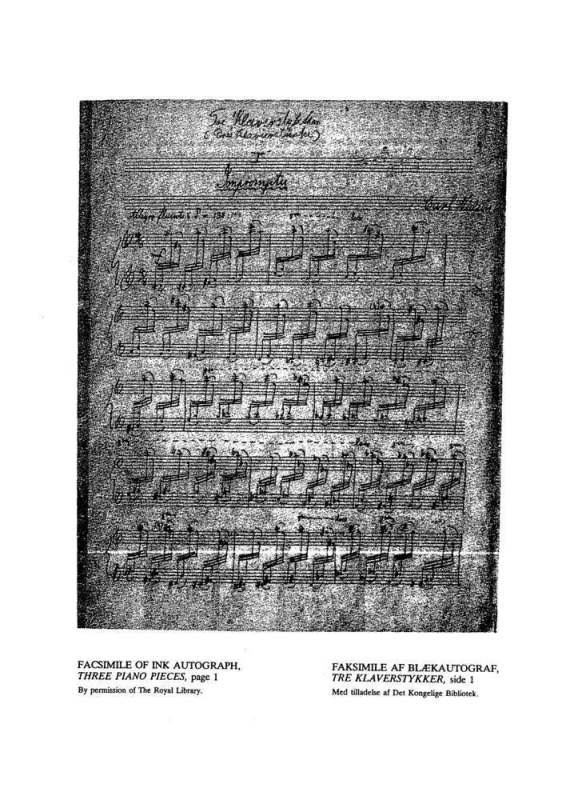 Tre Klaverstykker
I
Impromptu
Carl Nielsen
FACSIMILE OF INK AUTOGRAPH,
THREE PIANO PIECES, page 1
By permission of The Royal Library.
FAKSIMILE AF BLÆKAUTOGRAF,
TRE KLAVERSTYKKER, side 1
Med tilladelse af Det Kongelige Bibliotek.